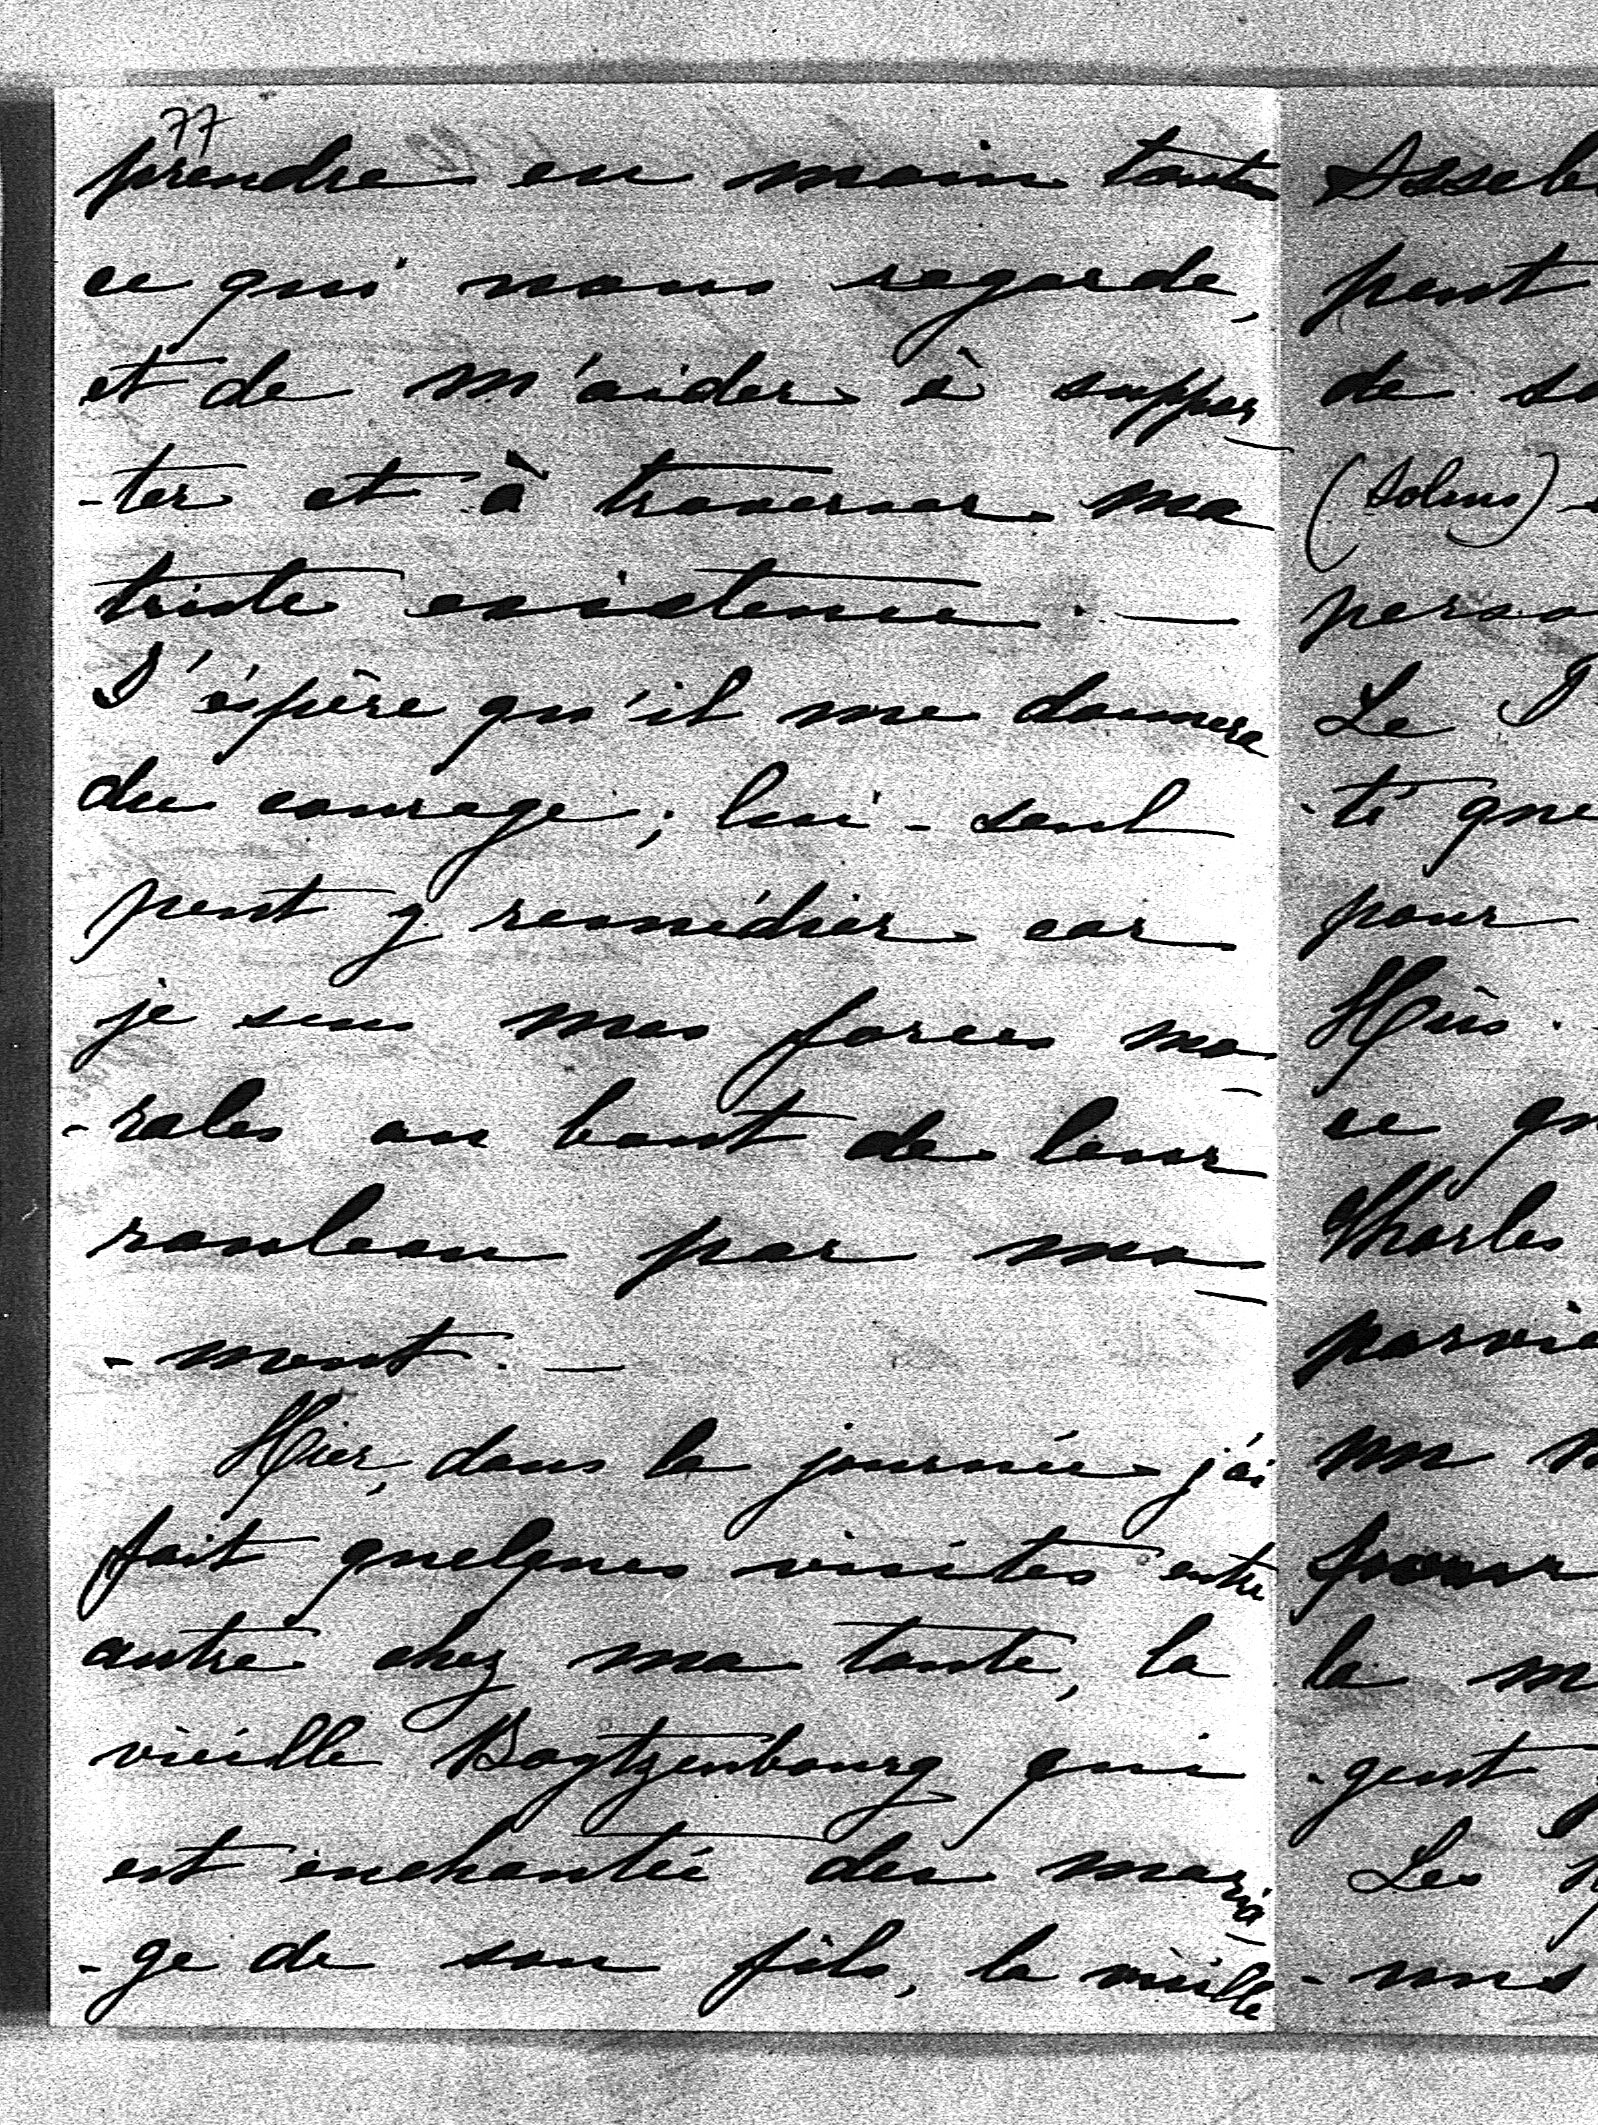 77
prendre en main toute
ce qui nous regarde,
et de m'aider à suppor
-ter et à traverser ma
triste existence. —
J'éspère qu'il me donnera
du courage; lui-seul
peut y remédier car
je sens mes forces mo
-rales au bout de leur
rouleau par mo
-ment. —
Hier, dans la journée j'ai
fait quelques visites entre
autre chez ma tante, la
vieille Boytzenbourg qui
est enchantée des maria
-ge de son fils, la vieille
peut
de
(Solms)
Le
-té que
pour
ce
Charles
pour
la
-gent
Les